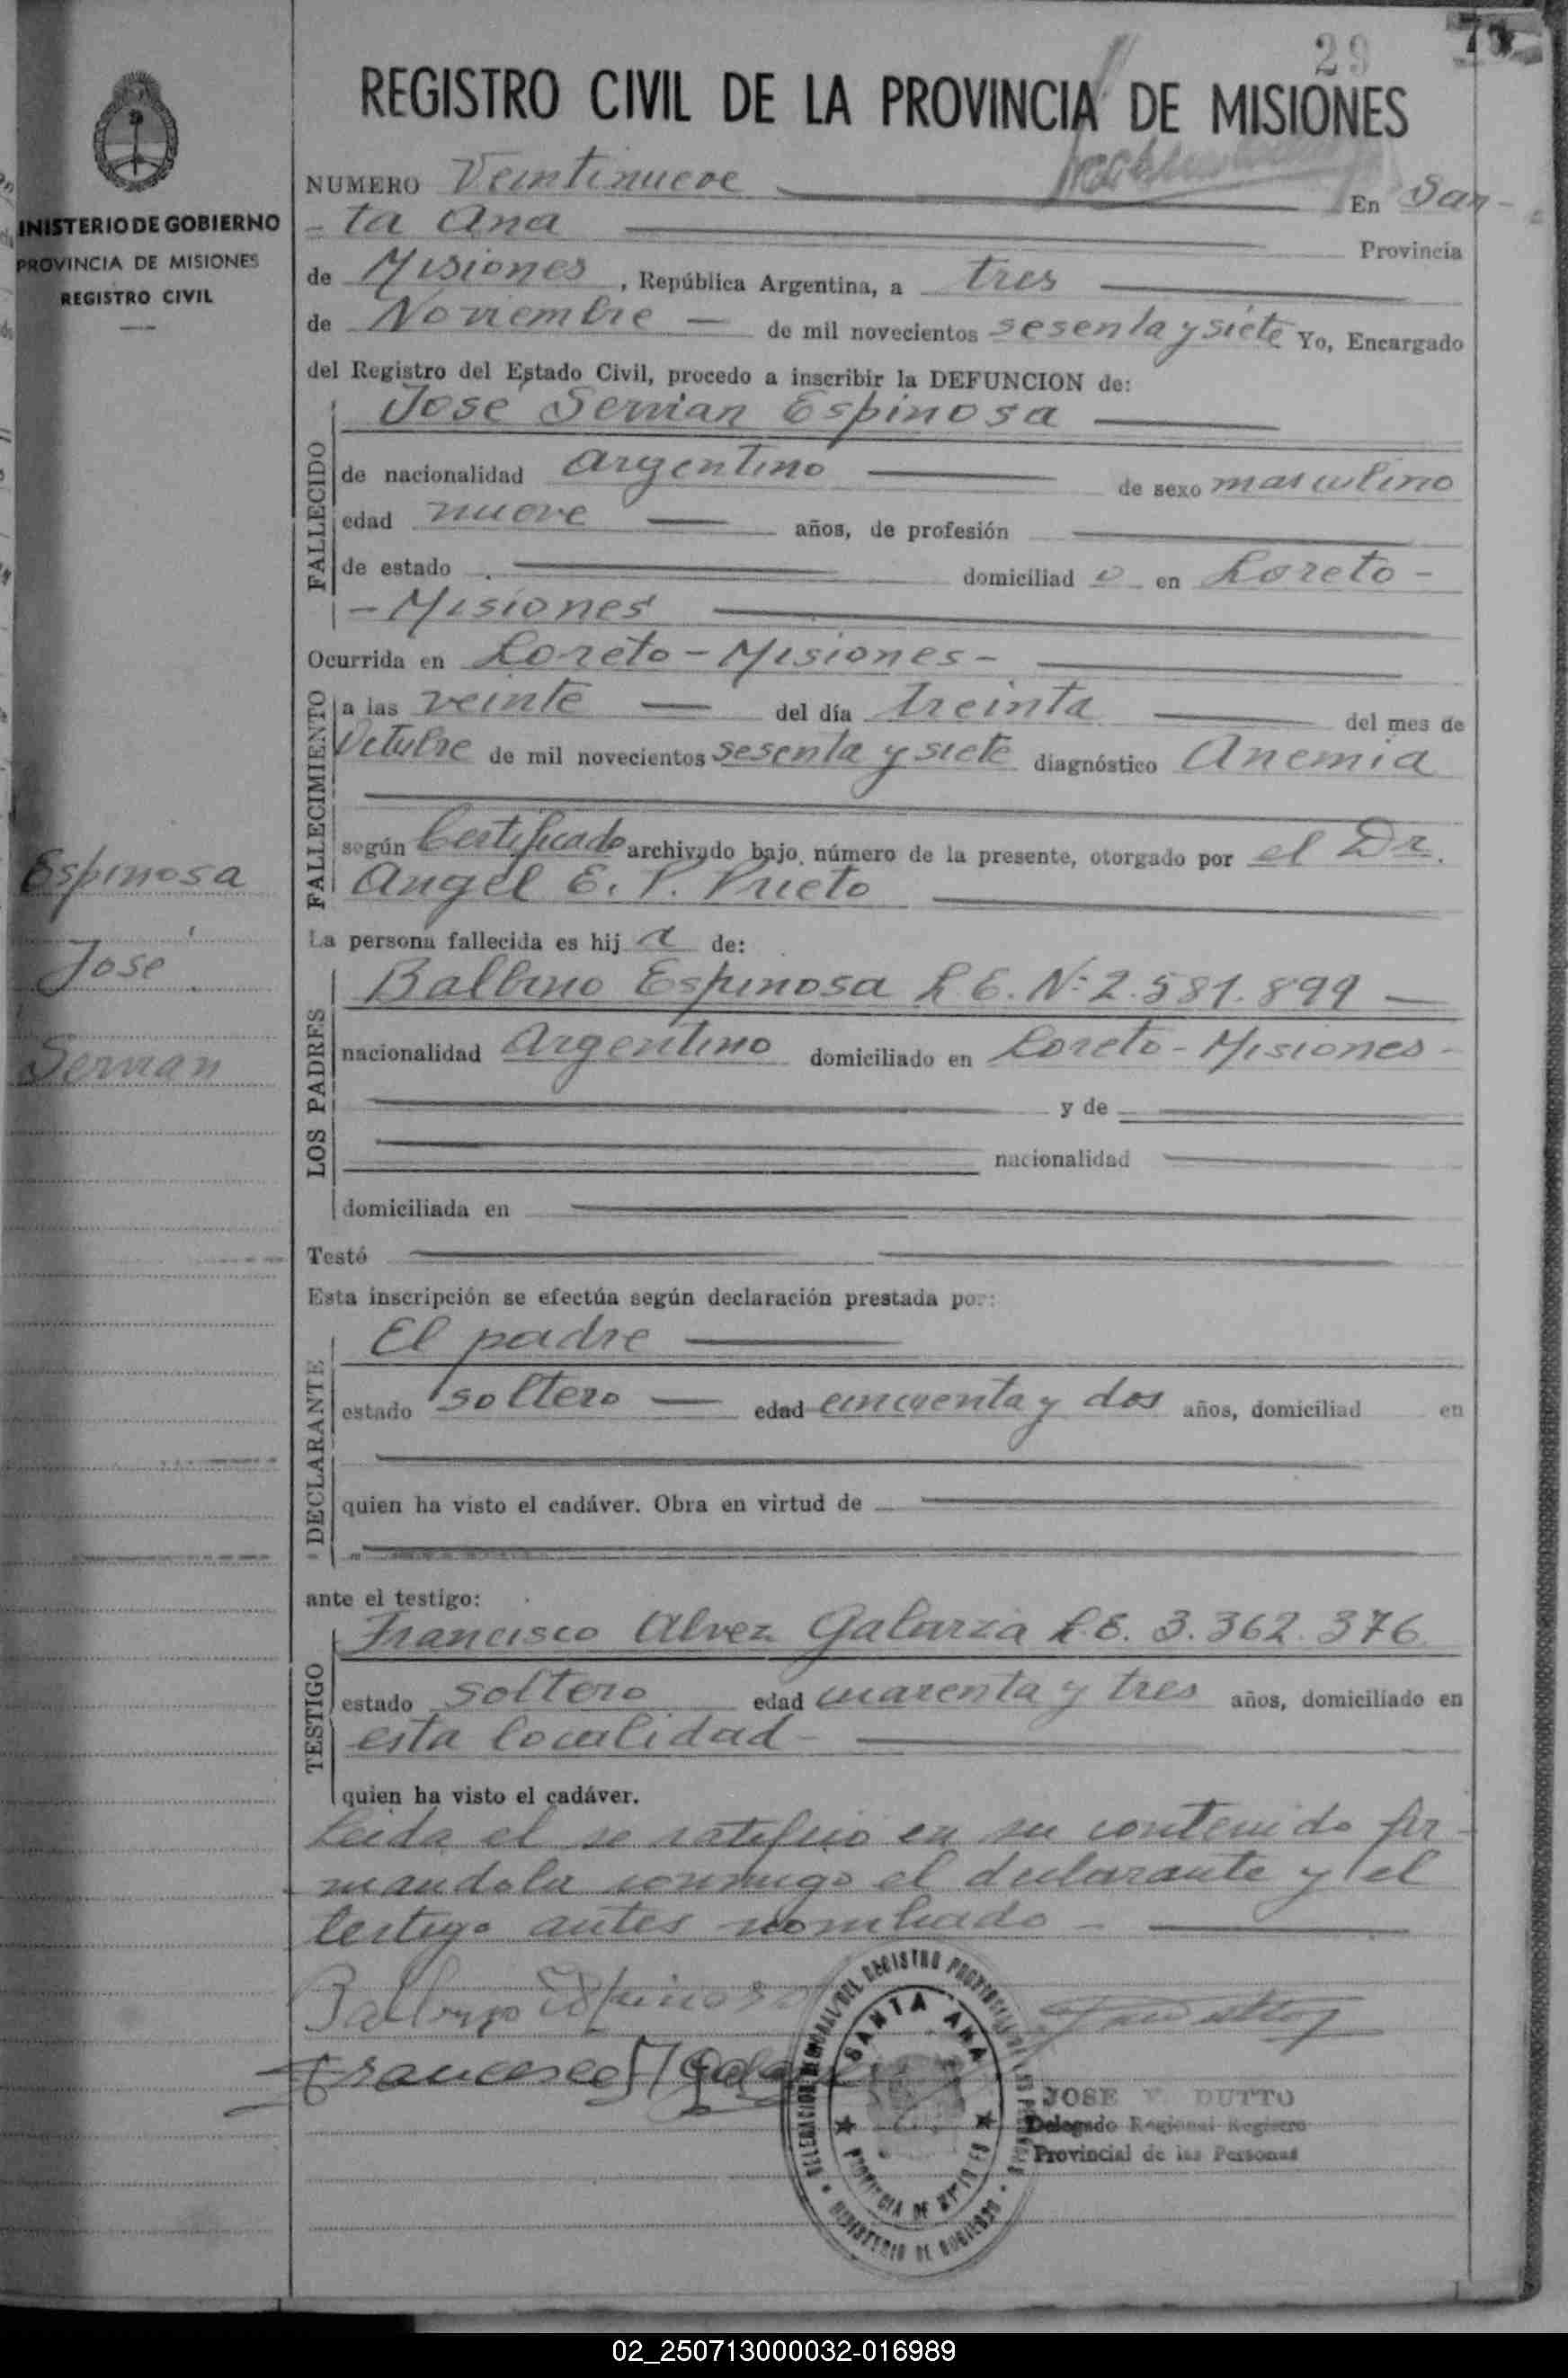 29
REGISTRO CIVIL DE LA PROVINCIA DE MISIONES
MINISTERIO DE GOBIERNO
PROVINCIA DE MISIONES
REGISTRO CIVIL
NUMERO Veintinueve En San-
-ta Ana Provincia
de Misiones, República Argentina, a tres
de Noviembre — de mil novecientos sesenta y siete Yo, Encargado
del Registro del Estado Civil, procedo a inscribir la DEFUNCION de:
José Servian Espinosa
FALLECIDO
de nacionalidad argentino de sexo masculino
edad nueve — años, de profesión
de estado domiciliado en Loreto-
-Misiones
Ocurrida en Loreto-Misiones-
FALLECIMIENTO
a las veinte — del día treinta — del mes de
Octubre de mil novecientos sesenta y siete diagnóstico Anemia
según Certificado archivado bajo número de la presente, otorgado por el Dr.
Angel E. P. Prieto
Espinosa
José
Servian
La persona fallecida es hij de:
LOS PADRES
Balbino Espinosa L.E. Nº 2.581.899 —
nacionalidad Argentino domiciliado en Loreto-Misiones-
y de
nacionalidad
domiciliada en
Testó
Esta inscripción se efectúa según declaración prestada por:
DECLARANTE
El padre
estado soltero — edad cincuenta y dos años, domiciliad en
quien ha visto el cadáver. Obra en virtud de
ante el testigo:
TESTIGO
Francisco Alvez Galarza L.E. 3.362.376
estado soltero edad cuarenta y tres años, domiciliado en
esta localidad-
quien ha visto el cadáver.
Leida el se ratificó en su contenido fir-
mandola conmigo el declarante y el
testigo antes nombrado-
Balbino Espinosa
Francisco
DELEGACION REGIONAL DEL REGISTRO PROVINCIAL DE LAS PERSONAS
SANTA ANA
PROVINCIA DE MISIONES
MINISTERIO DE GOBIERNO
JOSE V. DUTTO
Delegado Regional Registro
Provincial de las Personas
02_250713000032-016989